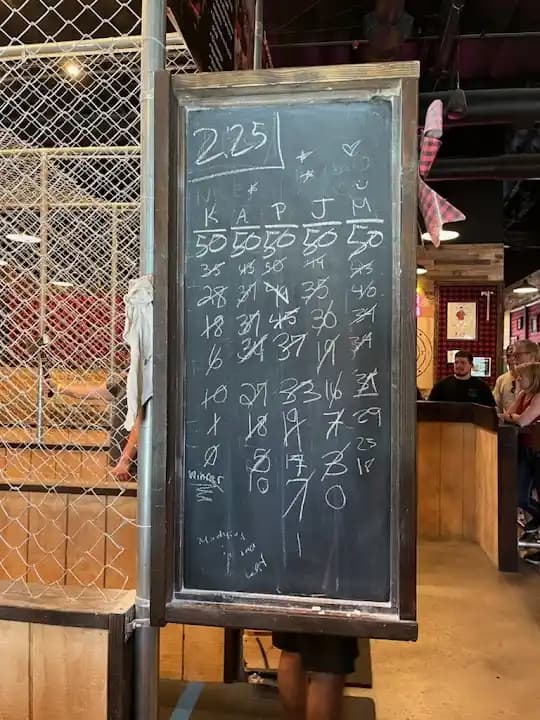 2:25
K A P J M
50 50 50 50 50
35 45 50 44 45
28 37 35 40
18 37 45 30 34
16 34 37 19 34
10 27 33 16 31
1 18 19 7 29
0 5 17 3 25
Winner 10 7 0 18
1